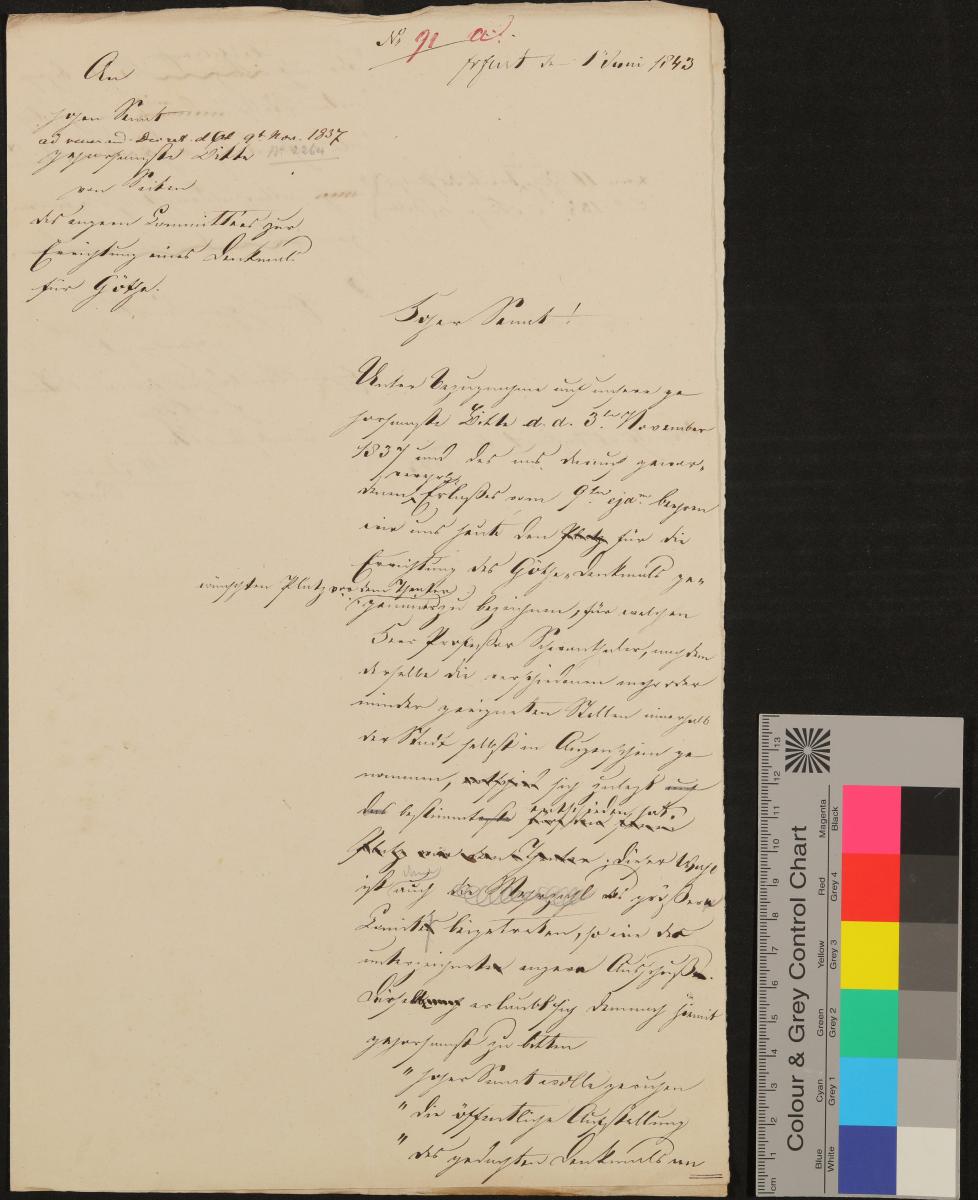 No 91 a.
Erfurt den 1 Juni 1843
An
hohen Senat
ad venerand. Decret. d.d. 9t Nov. 1837
No 2264
gehorsamste Bitte
von Seiten
des engern Committées zur
Errichtung eines Denkmals
für Göthe.
Hoher Senat!
Unter Bezugnahme auf unsere ge
horsamste Bitte d. d. 3ten November
1837 und des uns darauf gewor-
verehrl.
denen Erlaßes vom 9ten ejdm beehren
wir uns heute den Platz für die
Errichtung des Göthe-Denkmals ge-
wünschten Platz vor dem Theater
zu bezeichnen, für welchen
Herr Professor Schwanthaler, nachdem
derselbe die verschiedenen mehr oder
minder geeigneten Stellen innerhalb
der Stadt selbst in Augenschein ge
nommen, sich zuletzt auf
das bestimmteste entschieden hat.
Platz vor dem Theater, dieser Wahl
ist auch dann die Mehrzahl des größern
Comités beigetreten, so wie der
unterzeichnete engere Ausschuß.
Derselbe erlaubt sich demnach hiermit
gehorsamst zu bitten
" hoher Senat wolle geruhen
" die öffentliche Aufstellung
" des gedachten Denkmals an
Colour & Grey Control Chart
Blue Cyan Green Yellow Red Magenta
White Grey 1 Grey 2 Grey 3 Grey 4 Black
cm 1 2 3 4 5 6 7 8 9 10 11 12 13